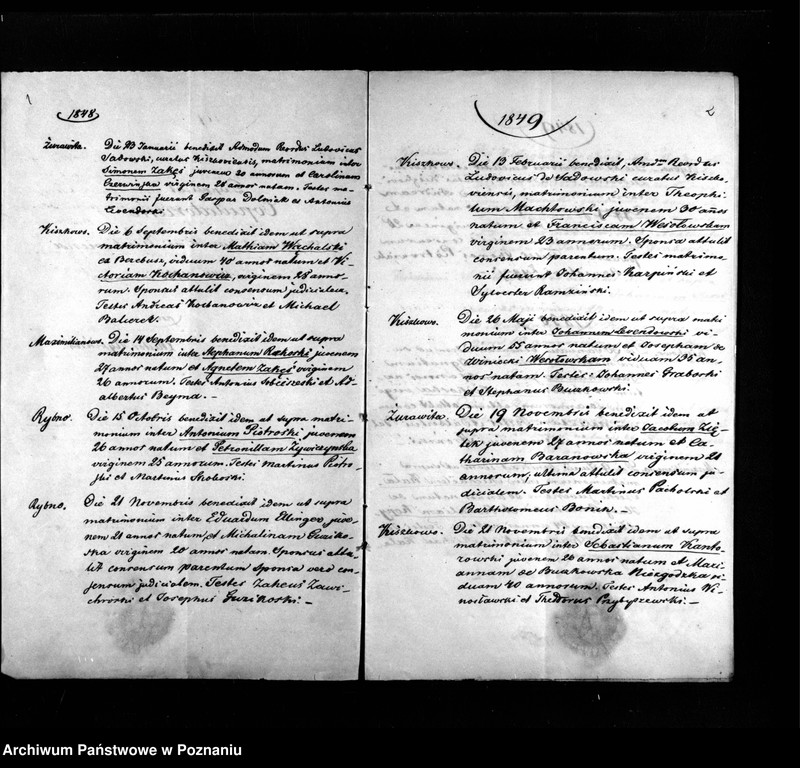 1
1848
Żurawita. Die 23 Januarii benedixit Admodum Rvrdus Ludovicus
Sadowski, curatus Kiszkoviensis, matrimonium inter
Simonem Zakęs juvenem 20 annorum et Carolinam
Czerwinska virginem 28 annor natam. Testes ma-
trimonii fuerunt Gaspar Dolniak et Antonius
Kiszkowo. Die 6 Septembris benedixit idem ut supra
matrimonium inter Mathiam Wachalski
viduum 40 annor natum et Vi-
ctoriam Kochanowicz, virginem 28 anno-
rum. Sponsus attulit consensum judicialem.
Testes Andreas Kochanowicz et Michael
Balicrek.
Maximilianowo. Die 14 Septembris benedixit idem ut supra
matrimonium inter Stephanum Rakoski juvenem
27 annor natum et Agnetem Zakęs virginem
26 annorum. Testes Antonius Sobcieszeski et Ad-
albertus Beyma. -
Rybno. Die 15 Octobris benedixit idem ut supra matri-
monium inter Antonium Piotroski juvenem
26 annor natum et Petronillam Zywiczynska
virginem 25 annorum. Testes Martinus Piotro-
ski et Martinus Skoboski.
Rybno. Die 21 Novembris benedixit idem ut supra
matrimonium inter Eduardum Ellenger juve-
nem 21 annor natum et Michalinam Guziko-
ska virginem 20 annor natam. Sponsus attu-
lit consensum parentum sponsa vero con-
sensum judicialem. Testes Zakeus Zawi-
et Josephus Guzikoski. -
2
1849
Kiszkowo. Die 19 Februarii benedixit, Amdm Revrdus
Ludovicus de Sadowski curatus Kiszko-
viensis, matrimonium inter Theophi-
lum Machtowski juvenem 30 años
natum et Franciscam Wesołowskam
virginem 23 annorum. Sponsa attulit
consensum parentum. Testes matrimo-
nii fuerunt Johannes Karpiński et
Sylvester Ramziński.
Kiszkowo. Die 26 Maji benedixit idem ut supra matri
monium inter Johannem Lewandowski vi-
duum 55 annor natum et Josepham de
Winiecki Wesołowskam viduam 36 an-
nor natam. Testes: Johannes Graboski
et Stephanus Buakowski.
Żurawita. Die 19 Novembris benedixit idem ut
supra matrimonium inter Jacobum Zię-
tek juvenem 27 annor natum et Ca-
tharinam Baranowska virginem 21
annorum, ultima attulit consensum ju-
dicialem. Testes Martinus Pacholski et
Bartholomeus Bonik. -
Kiszkowo. Die 21 Novembris benedixit idem ut supra
matrimonium inter Sebastianum Kanto-
rowski juvenem 26 annor natum et Mari-
annam de Buakowska vi-
duam 40 annorum. Testes Antonius Wi-
nosławski et Theodorus Przybyszewski. -
Archiwum Państwowe w Poznaniu